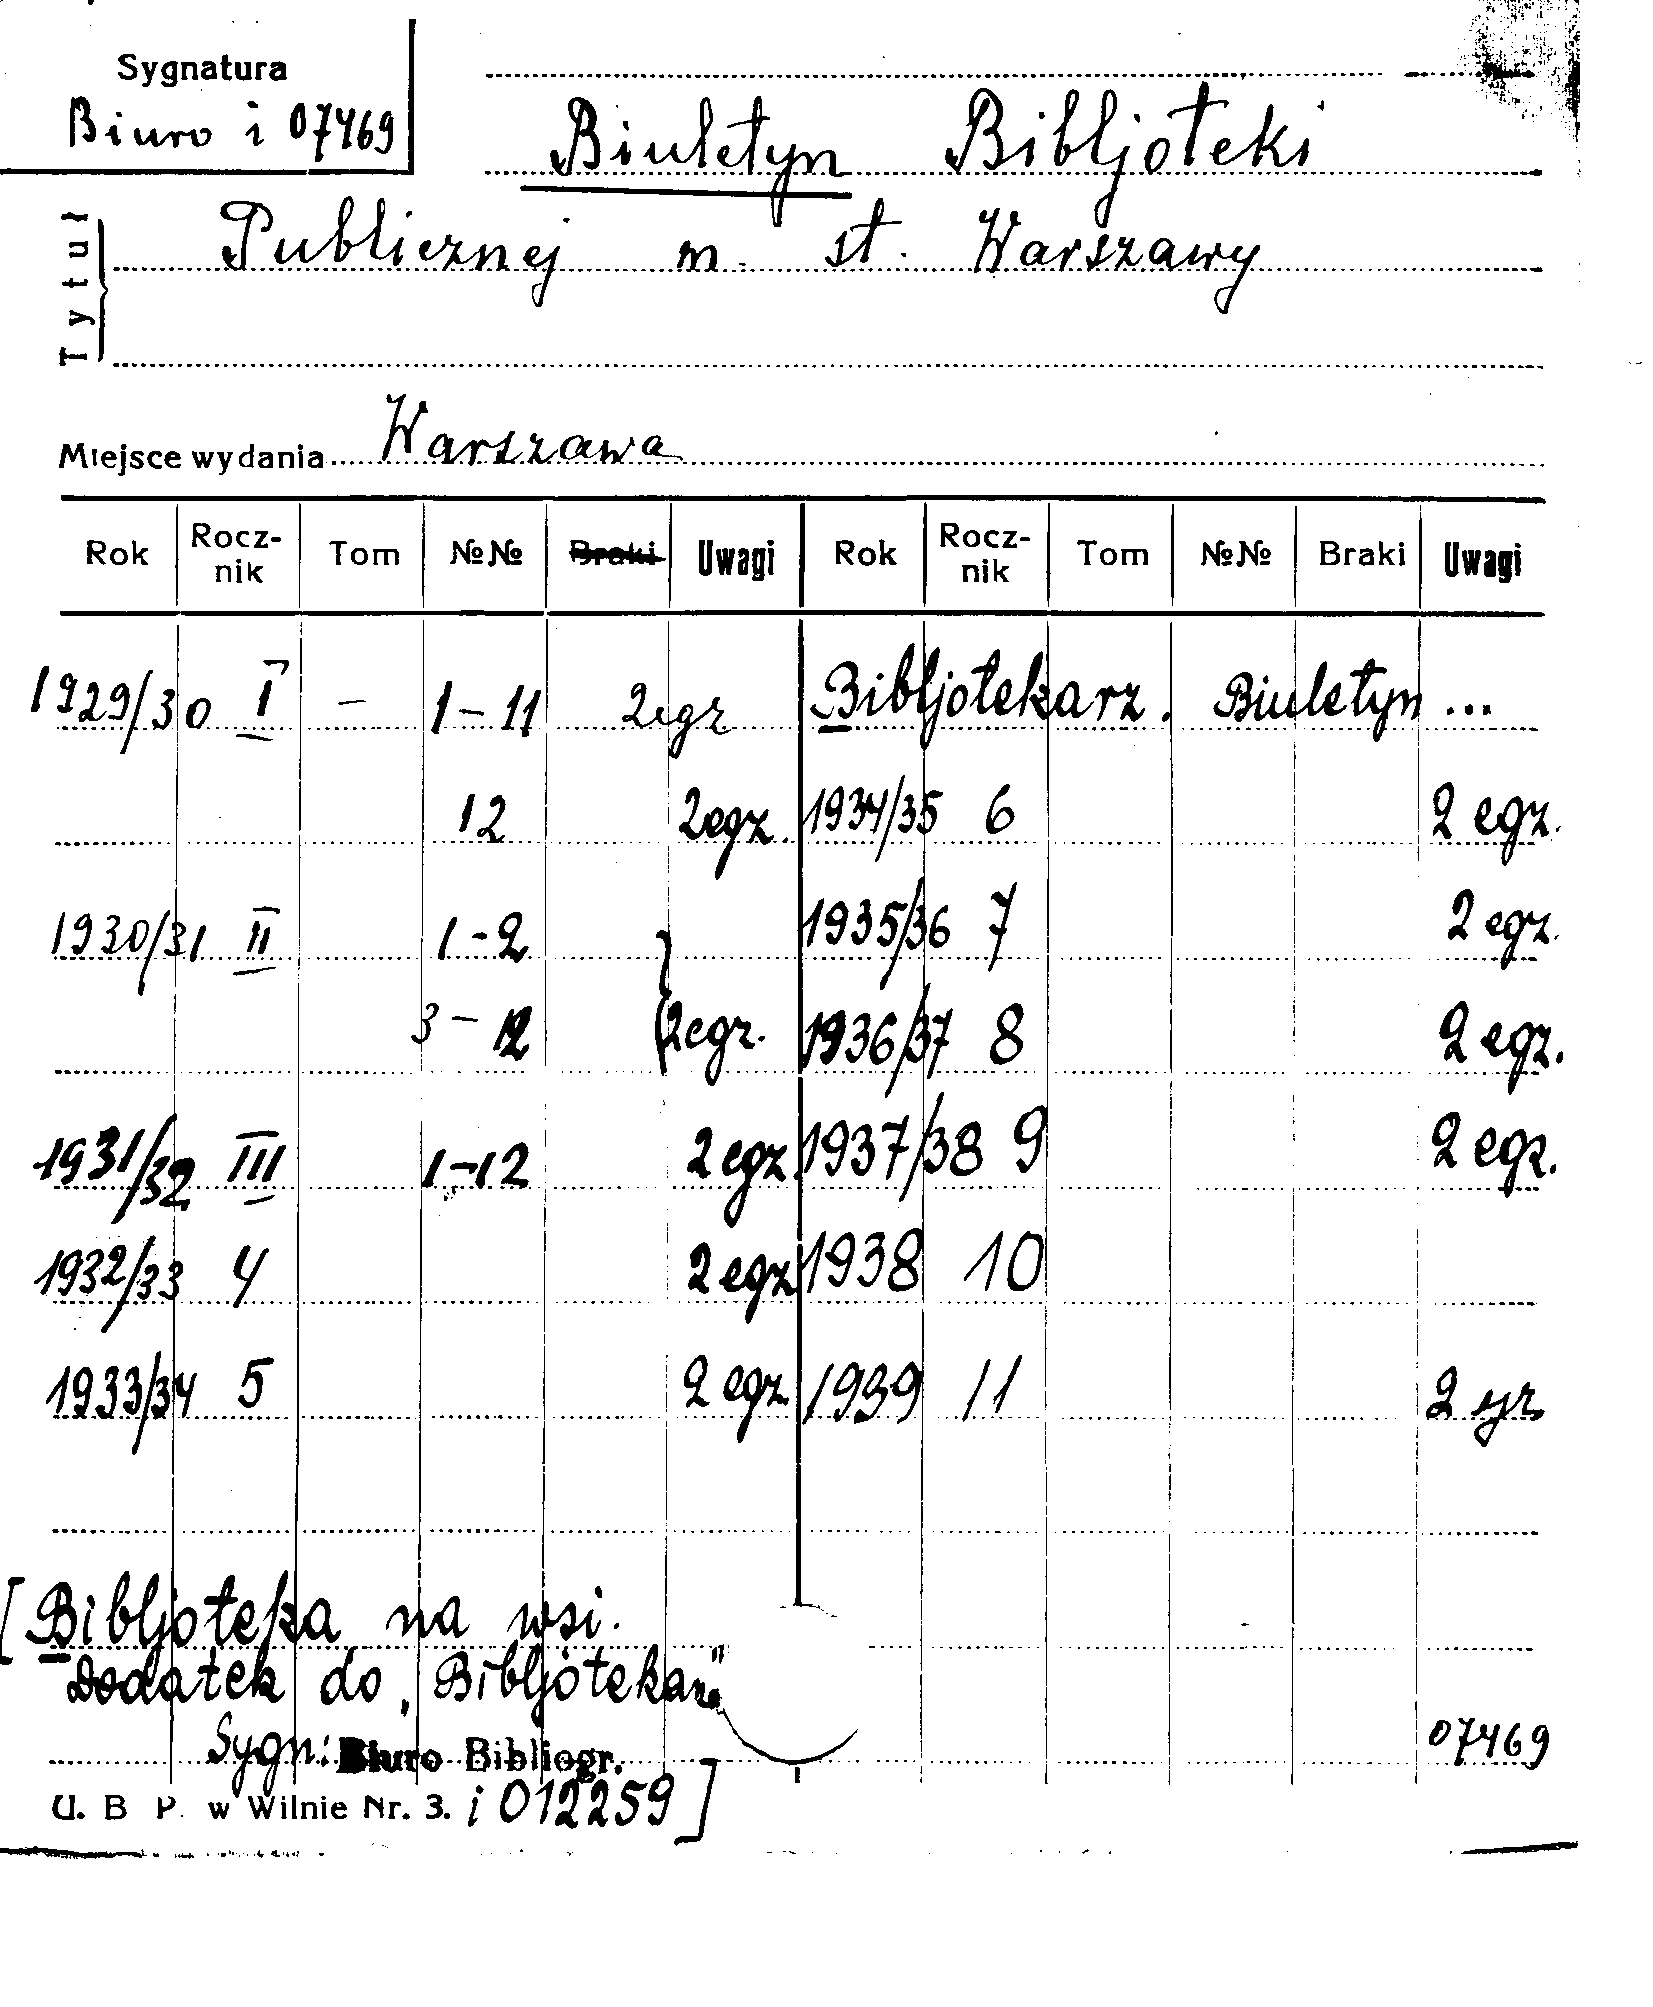 Sygnatura
Biuro i 07469
Biuletyn Bibljoteki
Publicznej m. st. Warszawy
Tytuł
Miejsce wydania Warszawa
Rok Rocz-nik Tom №№ Braki Uwagi Rok Rocz-nik Tom №№ Braki Uwagi
1929/30 I – 1-11 2egz Bibljotekarz. Biuletyn ...
12 2egz. 1934/35 6 2 egz.
1930/31 II 1-2 1935/36 7 2 egz.
3-12 2egz. 1936/37 8 2 egz.
1931/32 III 1-12 2 egz. 1937/38 9 2 egz.
1932/33 4 2 egz 1938 10
1933/34 5 2 egz 1939 11 2
[Bibljoteka na wsi.
Dodatek do „Bibljotekarza"
Sygn: Biuro Bibliogr. 07469
U. B P. w Wilnie Nr. 3. i 012259]